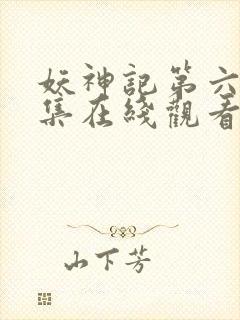 妖神記第六
集在綫觀看
山下芳